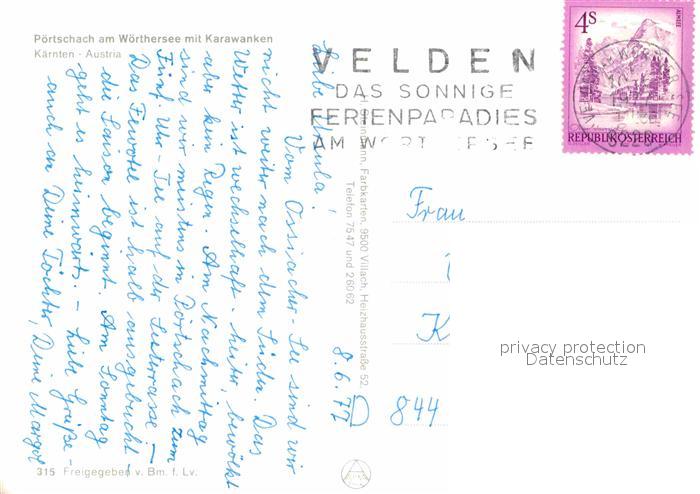 Pörtschach am Wörthersee mit Karawanken
Kärnten - Austria
VELDEN
DAS SONNIGE
FERIENPARADIES
AM WÖRTHERSEE
4 S
ALMSEE
REPUBLIK ÖSTERREICH
8. 6. 77
Liebe Ursula!
Vom Ossiacher-See sind wir
nicht weiter nach dem Süden. Das
Wetter ist wechselhaft - heiter, bewölkt
aber kein Regen. Am Nachmittag
sind wir meistens in Pörtschach zum
Fünf-Uhr-Tee auf der Seeterrasse. -
Das Parkhotel ist halb ausgebucht -
die Saison beginnt. Am Sonntag
geht es heimwärts. - Liebe Grüße -
auch an Deine Töchter, Deine Margot
Farbkarten, 9500 Villach, Heizhausstraße 52,
Telefon 7547 und 26062
Frau
i
K
D 844
privacy protection
Datenschutz
315 Freigegeben v. Bm. f. Lv.